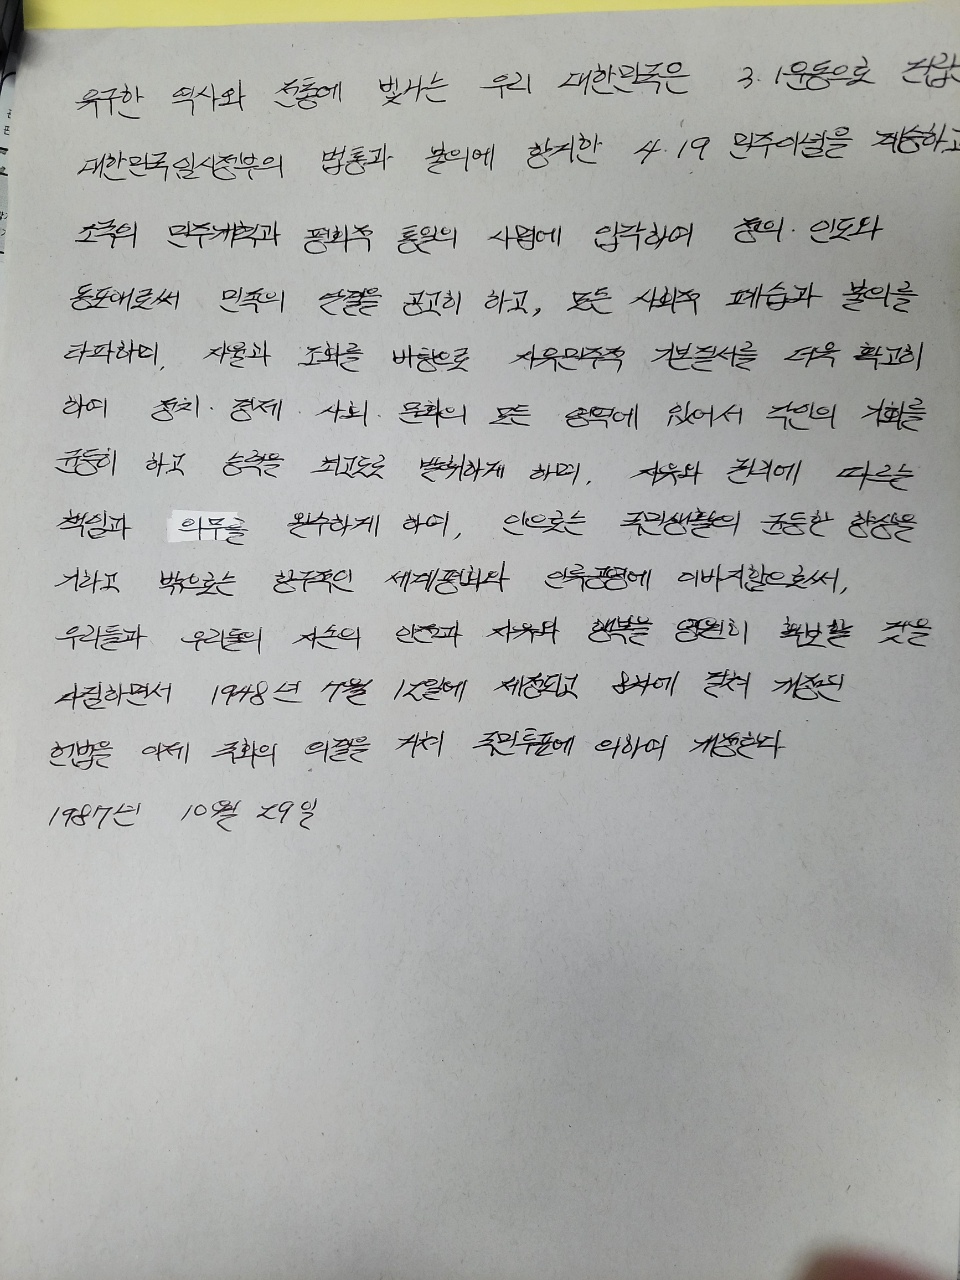 유구한 역사와 전통에 빛나는 우리 대한민국은 3.1운동으로 건립
대한민국임시정부의 법통과 불의에 항거한 4.19 민주이념을 계승하고
조국의 민주개혁과 평화적 통일의 사명에 입각하여 정의·인도와
동포애로써 민족의 단결을 공고히 하고, 모든 사회적 폐습과 불의를
타파하며, 자율과 조화를 바탕으로 자유민주적 기본질서를 더욱 확고히
하여 정치·경제·사회·문화의 모든 영역에 있어서 각인의 기회를
균등히 하고 능력을 최고도로 발휘하게 하며, 자유와 권리에 따르는
책임과 의무를 완수하게 하여, 안으로는 국민생활의 균등한 향상을
기하고 밖으로는 항구적인 세계평화와 인류공영에 이바지함으로써,
우리들과 우리들의 자손의 안전과 자유와 행복을 영원히 확보할 것을
다짐하면서 1948년 7월 12일에 제정되고 8차에 걸쳐 개정된
헌법을 이제 국회의 의결을 거쳐 국민투표에 의하여 개정한다
1987년 10월 29일